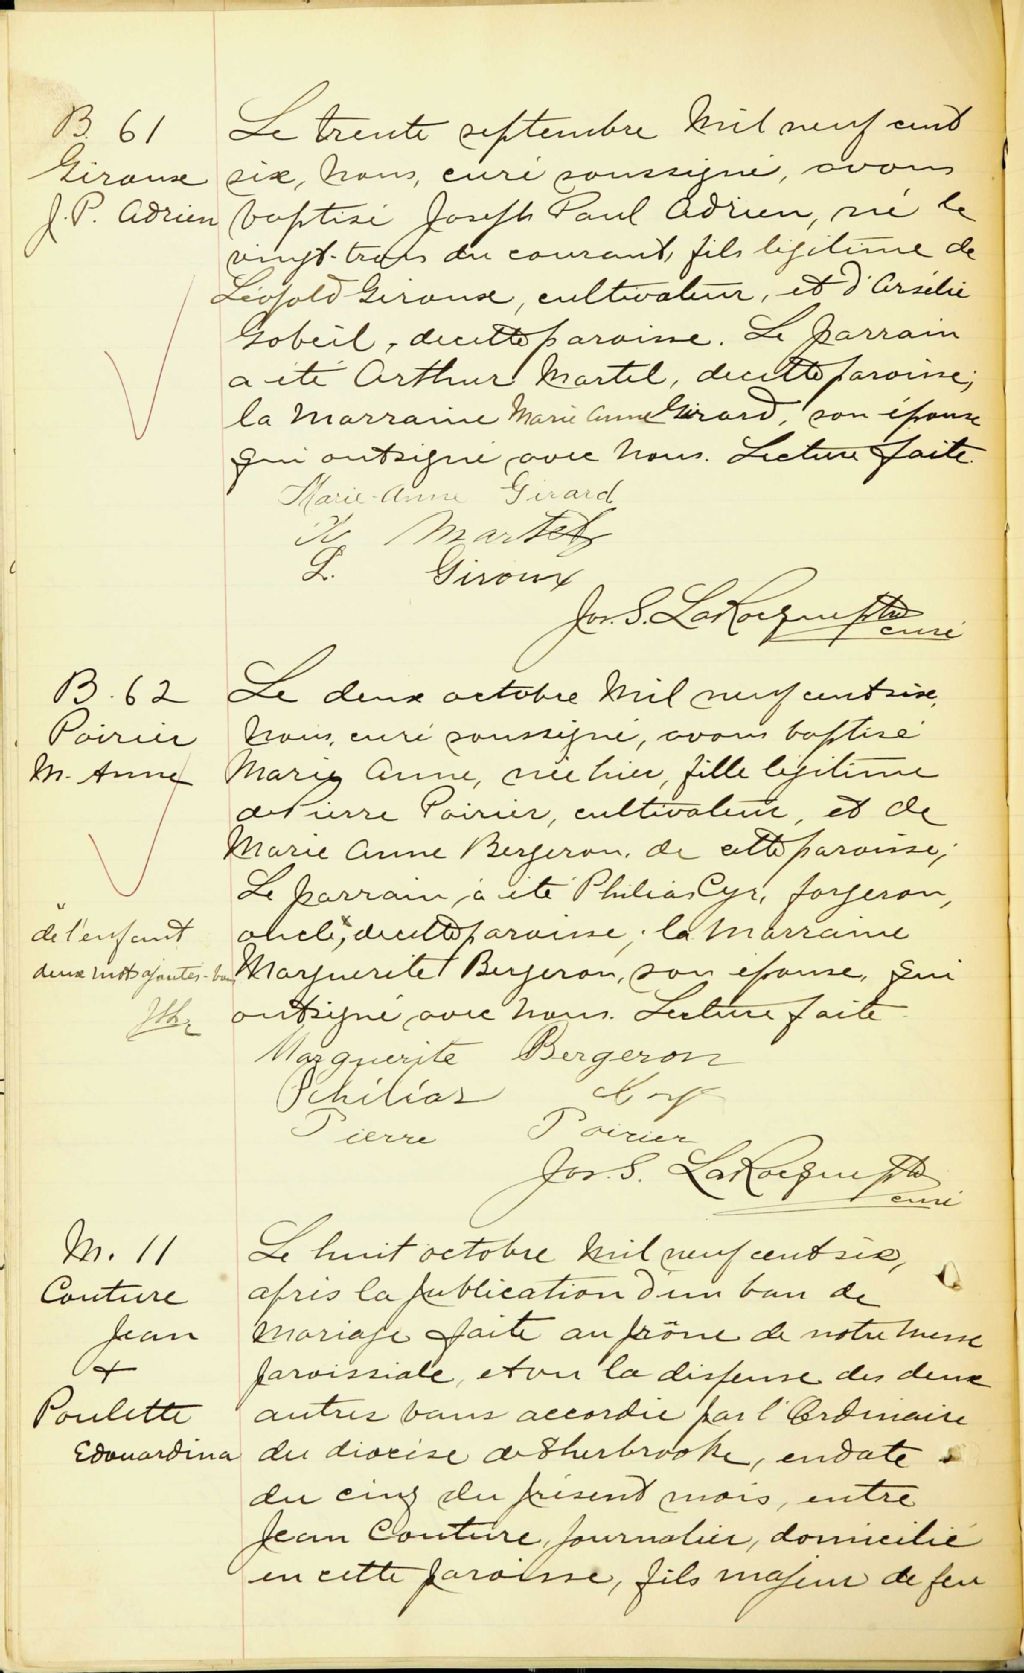 B. 61
Giroux
J. P. Adrien
Le trente septembre mil neuf cent
six, nous, curé soussigné, avons
baptisé Joseph Paul Adrien, né le
vingt-trois du courant, fils légitime de
Léopold Giroux, cultivateur, et d'Arsélie
Gobeil, de cette paroisse. Le parrain
a été Arthur Martel, de cette paroisse;
la marraine Marie Anne Girard, son épouse
qui ont signé avec nous. Lecture faite.
Marie-Anne Girard
Martel
L. Giroux
Jos. S. LaRocque Ptre
curé
B. 62
Poirier
M. Anne
Le deux octobre mil neuf cent six,
nous, curé soussigné, avons baptisé
Marie Anne, née hier, fille légitime
de Pierre Poirier, cultivateur, et de
Marie Anne Bergeron, de cette paroisse;
Le parrain, a été Philias Cyr, forgeron,
oncle, de cette paroisse; la marraine
Marguerite Bergeron, son épouse, qui
ont signé avec nous. Lecture faite.
de l'enfant
deux mots ajoutés - bon
Marguerite Bergeron
Philias Cyr
Pierre Poirier
Jos. S. LaRocque Ptre
curé
M. 11
Couture
Jean
+
Poulette
Edouardina
Le huit octobre mil neuf cent six,
après la publication d'un ban de
mariage faite au prône de notre messe
paroissiale, et vu la dispense des deux
autres bans accordée par l'Ordinaire
du diocèse de Sherbrooke, en date
du cinq du présent mois, entre
Jean Couture, journalier, domicilié
en cette paroisse, fils majeur de feu